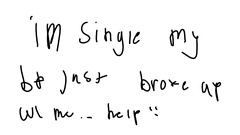 im single my
bf just broke up
w/ me.. help !!